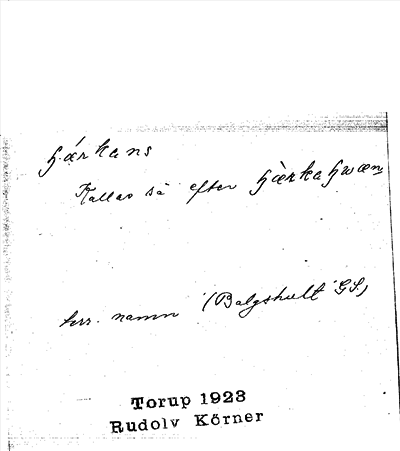 hárkans
Kallas så efter hàrkahwæn
terr. namn (Balgshult GS.)
Torup 1923
Rudolv Körner